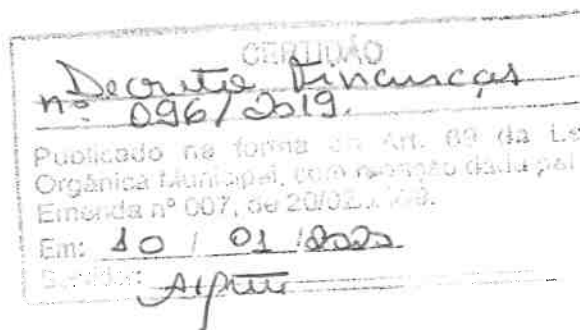 CERTIDÃO
Decreto Finanças
nº 096/2019.
Publicado na forma do Art. 69 da Lei
Orgânica Municipal, com redação dada pel
Emenda nº 007, de 20/02
Em: 10 / 01 / 2020
Servidor: